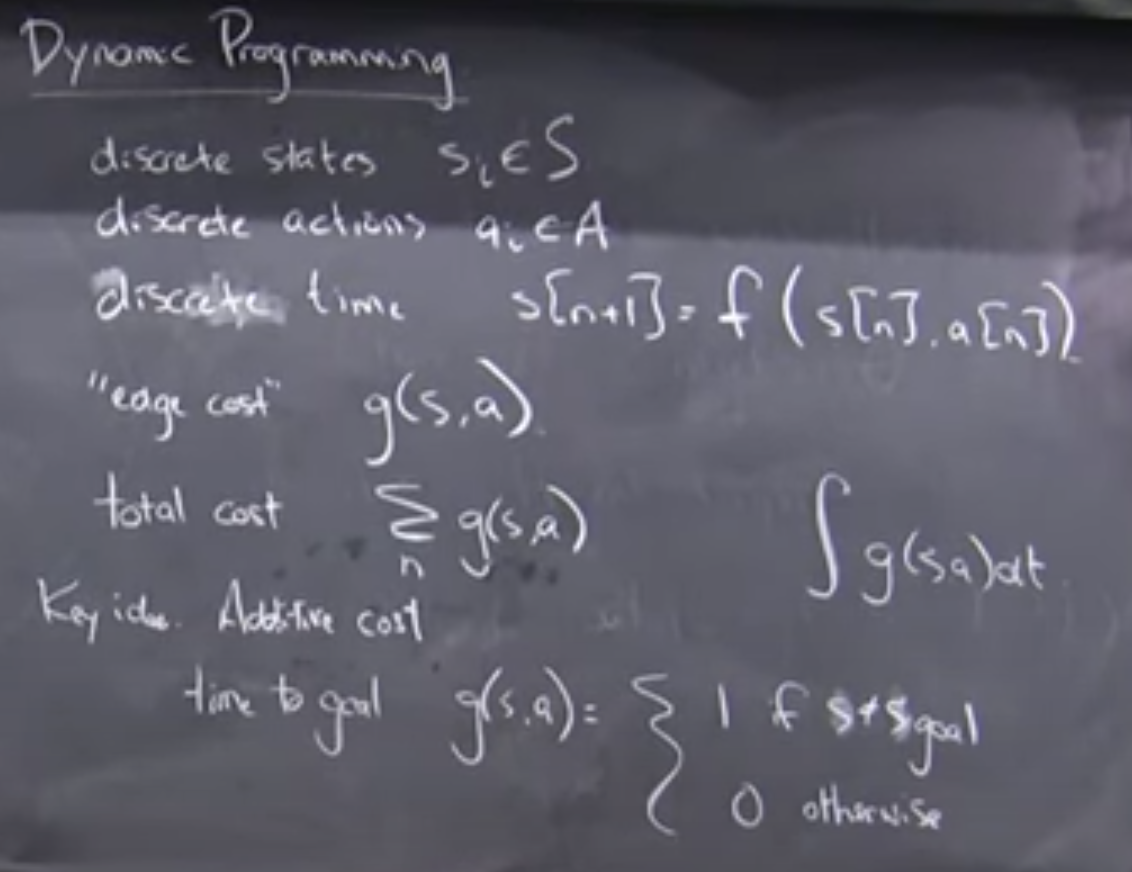 Dynamic Programming
discrete states s_i ∈ S
discrete actions a_i ∈ A
discrete time s[n+1] = f(s[n], a[n])
"edge cost" g(s,a)
total cost ∑_n g(s,a) ∫ g(s,a)dt
Key idea. Additive cost
time to goal g(s,a) = { 1 if s ≠ s_goal
0 otherwise